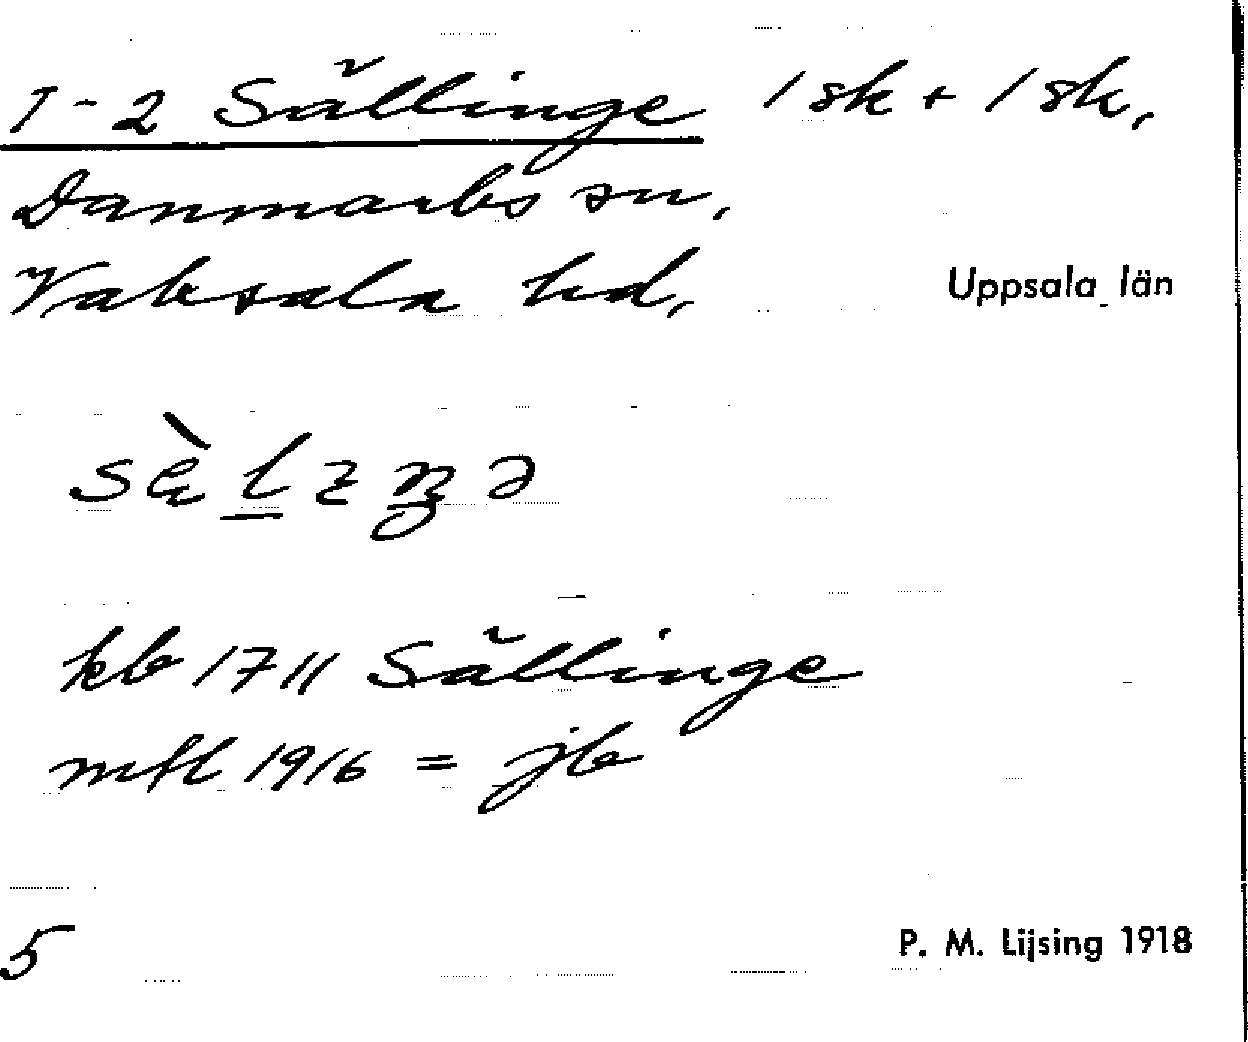 1-2 Sällinge 1 sk + 1 sk.
Danmarks sn.
Vaksala hd. Uppsala län
kb 1711 Sällinge
mfl 1916 = jb
5 P. M. Lijsing 1918